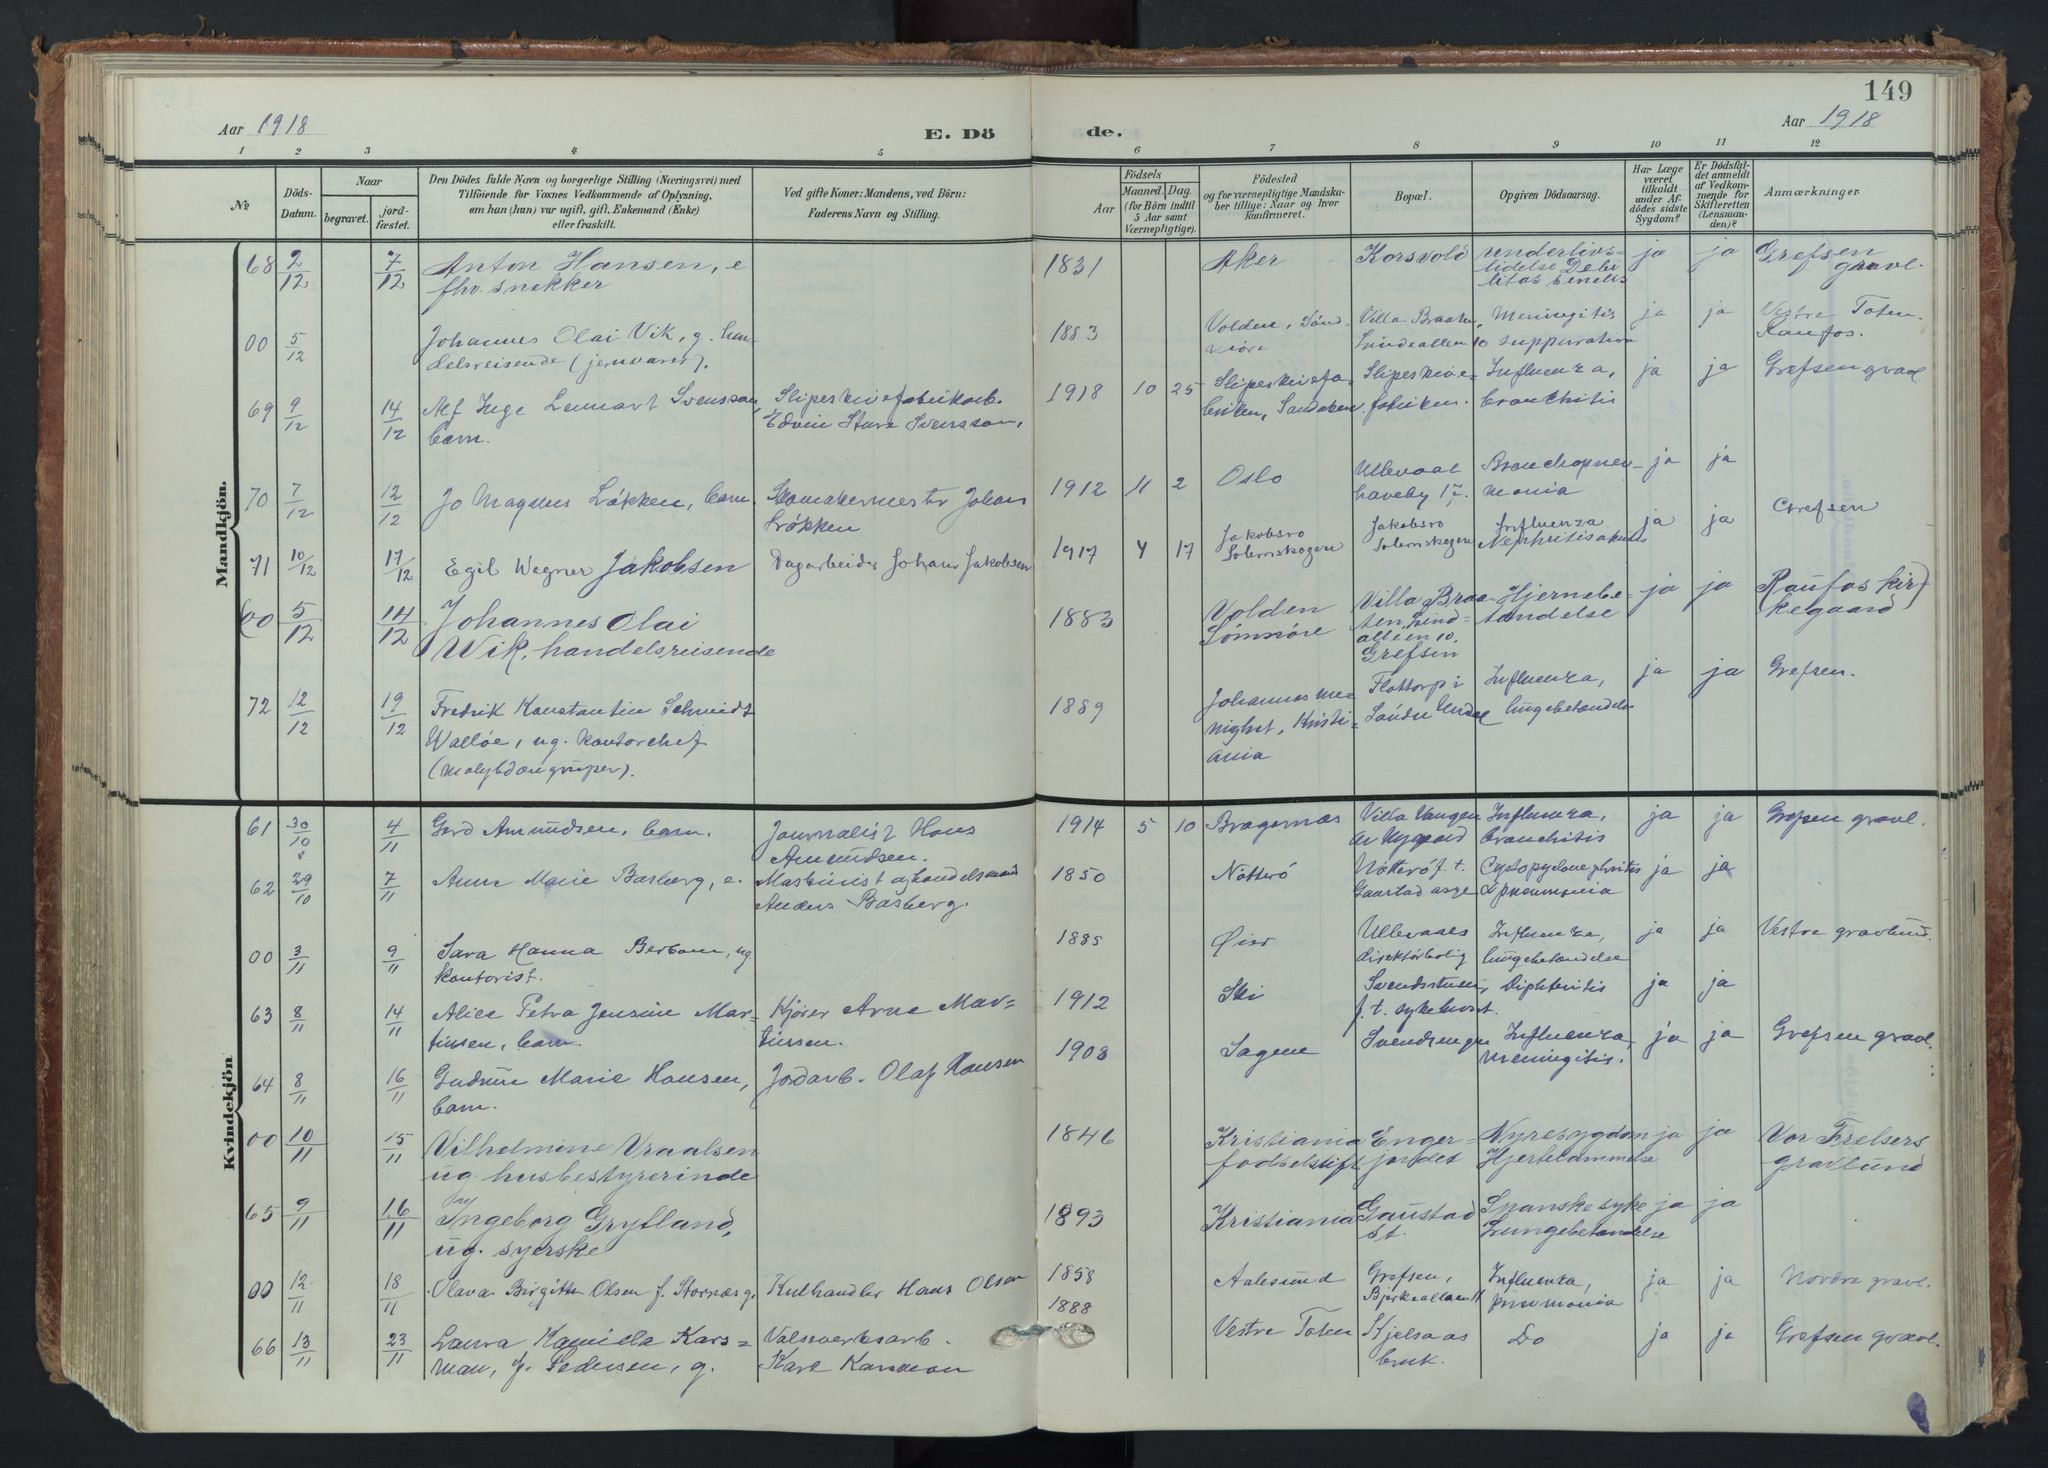 149
Aar 1918
E. Dö
de.
Aar 1918
1 2 3 4 5 6 7 8 9 10 11 12
№
Döds-
Datum.
Naar
begravet.
jord-
fæstet.
Den Dödes fulde Navn og borgerlige Stilling (Næringsvei) med
Tilföiende for Voxnes Vedkommende af Oplysning,
om han (hun) var ugift, gift, Enkemand (Enke)
eller fraskilt.
Ved gifte Koner: Mandens, ved Börn:
Faderens Navn og Stilling.
Födsels
Aar
Maaned. Dag.
(for Börn indtil
5 Aar samt
Værnepligtige).
Födested
og for værnepligtige Mandska-
ber tillige: Naar og hvor
konfirmeret.
Bopæl.
Opgiven Dödsaarsag.
Har Læge
været
tilkaldt
under Af-
dödes sidste
Sygdom?
Er Dödsfal-
det anmeldt
af Vedkom-
mende for
Skifteretten
(Lensman-
den)?
Anmærkninger
Mandkjön.
68 2/12 7/12 Anton Hansen, e 1831 Aker Korsvold underlivs- ja ja Grefsen
fhv. snekker lidelse Debi gravl.
litas senilis
00 5/12 Johannes Olai Vik, g. han- 1883 Volden, Sönd- Villa Braaten, Meningitis ja ja Vestre Toten.
delsreisende (jernvarer). möre Lindealleen 10 suppurativa Raufos.
69 9/12 14/12 Alf Inge Lennart Svensson, Slipeskivefabrikarb. 1918 10 25 Slipeskivefa- Slipeskive- Influenza, ja ja Grefsen gravl
barn. Edvin Sture Svensson, briken, Sandaken fabriken. bronchitis
70 7/12 12/12 Jo Magnus Løkken, barn. Skomakermester Johan 1912 11 2 Oslo Ullevaal Bronchopnev- ja ja
Løkken haveby monia
71 10/12 17/12 Egil Wegner Jakobsen Dagarbeider Johan Jakobsen 1917 4 17 Jakobsro Jakobsro Influenza ja ja Grefsen
Solemskogen Solemskogen Nephritis akuta
(00 5/12 14/12 Johannes Olai 1883 Volden Villa Braa- Hjernebe- ja ja (Raufos kir)
Wik, handelsreisende Sömnöre ten, Lind- tændelse kegaard
alléen 10.
Grefsen
72 12/12 19/12 Fredrik Konstantin Schmidt 1889 Johannes me- Flottorp i Influenza, ja ja Grefsen.
Walløe, ug. kontorchef nighet, Kristi- Søndre Undal lungebetændelse
(molybdængruper). ania
Kvindekjön
61 30/10 4/11 Gerd Amundsen, barn. Journalist Hans 1914 5 10 Bragernæs Villa Vangen Influenza, ja ja Grefsen gravl.
Amundsen. bronchitis
62 29/10 7/11 Anna Marie Basberg, e. Maskinist og handelsmand 1850 Nötterö Nötterö f. t. Cystopyelonephritis ja ja
Anders Basberg. Gaustad asyl & pneumonia
00 3/11 9/11 Sara Hanna Berbom, ug 1885 Øier Ullevaals Influenza, ja ja Vestre gravlund.
kontorist. direktörbolig lungebetændelse
63 8/11 14/11 Alice Petra Jensine Mar- Kjörer Arne Mar= 1912 Ski Svendsstuen, Diphteritis ja ja
tinsen, barn. tinsen. f. t. sykehuset.
64 8/11 16/11 Gudrun Marie Hansen, Jordarb. Olaf Hansen 1908 Sagene Influenza, ja ja Grefsen gravl.
barn. meningitis.
00 10/11 15/11 Vilhelmine Vraalsen 1846 Kristiania Enger- Nyresygdom ja ja Vor Frelsers
ug. husbestyrerinde fødselstift jordet Hjertelammelse gravlund
65 9/11 16/11 Ingeborg Grytland, 1893 Kristiania Gaustad Spanske syke ja ja
ug. syerske st. Lungebetændelse
00 12/11 18/11 Olava Birgitte Olsen f. Stornæs g. Kulhandler Hans Olsen 1858 Aalesund Grefsen, Influenza, ja ja Nordre gravl.
Bjerkealleen 11 pneumonia
66 13/11 23/11 Laura Kamilla Kars= Valseverksarb. 1888 Vestre Toten Kjelsaas Do ja ja Grefsen gravl.
man, f. Pedersen, g. Karl Karsman bruk.